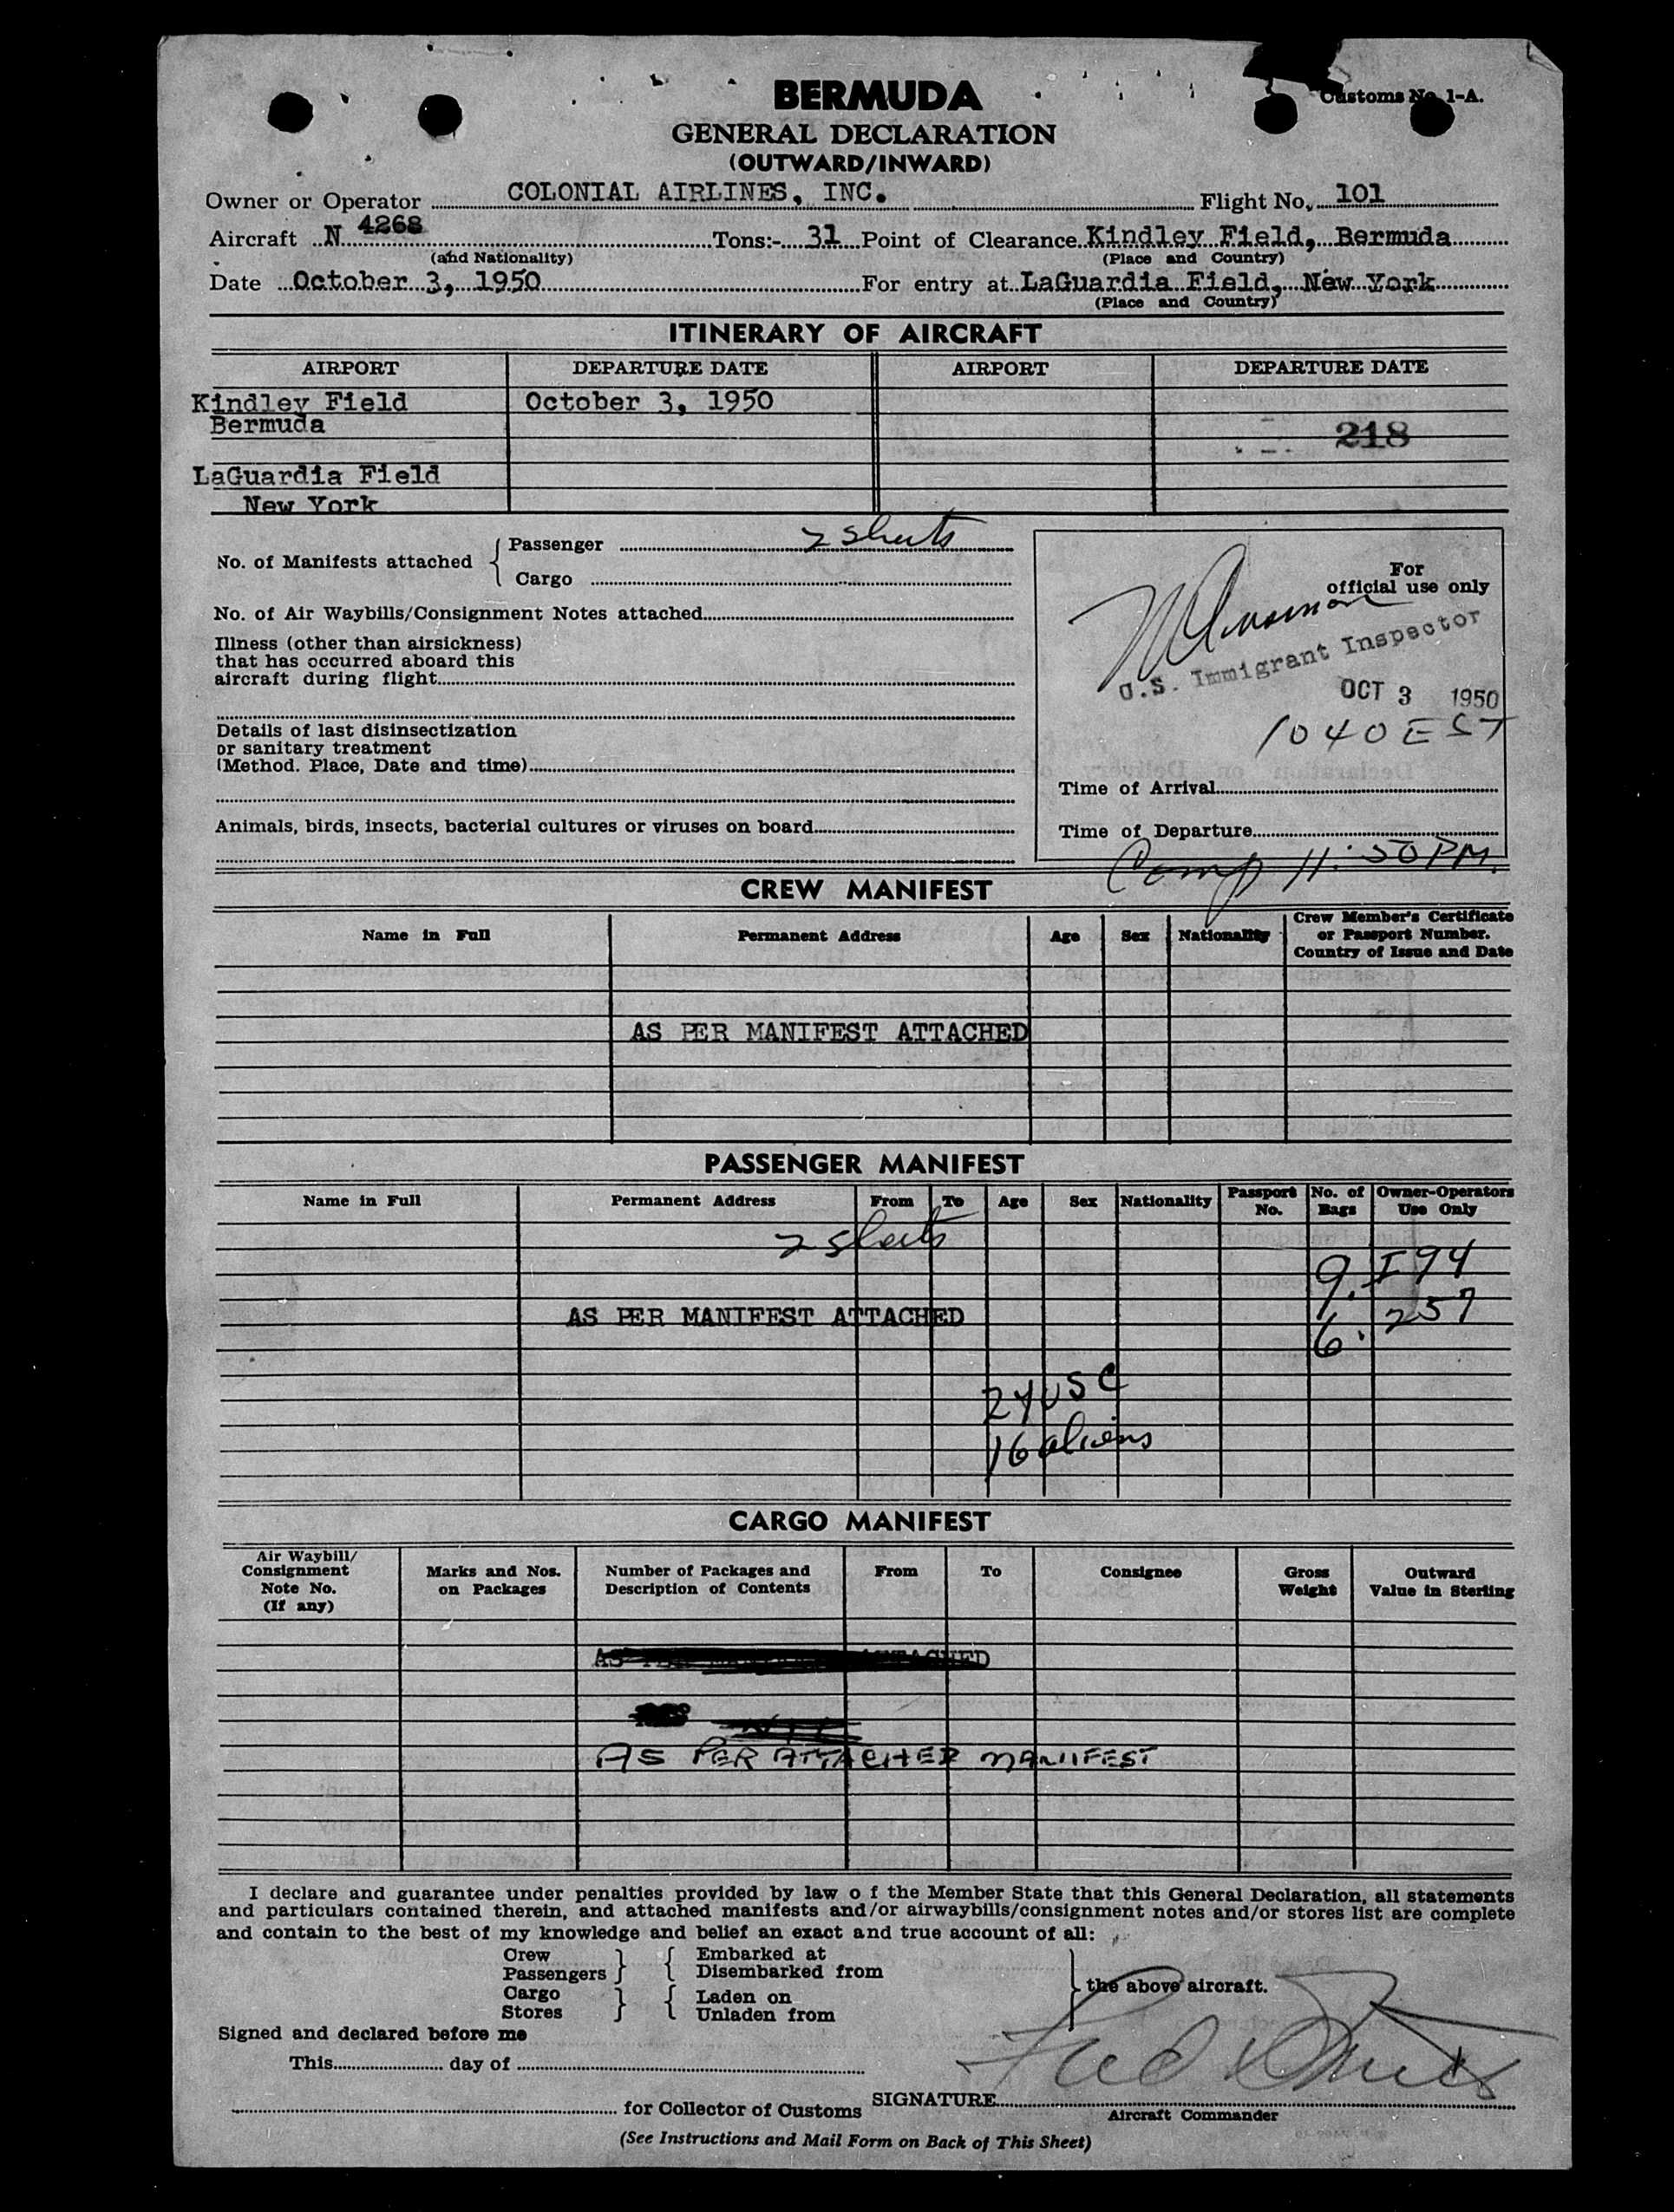 Customs No. 1-A.
BERMUDA
GENERAL DECLARATION
(OUTWARD/INWARD)
Owner or Operator COLONIAL AIRLINES, INC. Flight No. 101
Aircraft N 4268 Tons:- 31 Point of Clearance Kindley Field, Bermuda
(and Nationality) (Place and Country)
Date October 3, 1950 For entry at LaGuardia Field, New York
(Place and Country)
ITINERARY OF AIRCRAFT
AIRPORT DEPARTURE DATE AIRPORT DEPARTURE DATE
Kindley Field October 3, 1950
Bermuda
218
LaGuardia Field
New York
No. of Manifests attached
Passenger 2 sheets
Cargo
No. of Air Waybills/Consignment Notes attached
Illness (other than airsickness)
that has occurred aboard this
aircraft during flight
Details of last disinsectization
or sanitary treatment
(Method. Place, Date and time)
Animals, birds, insects, bacterial cultures or viruses on board
For
official use only
U.S. Immigrant Inspector
OCT 3 1950
1040 EST
Time of Arrival
Time of Departure
Comp 11:50 PM.
CREW MANIFEST
Name in Full Permanent Address Age Sex Nationality Crew Member's Certificate
or Passport Number.
Country of Issue and Date
AS PER MANIFEST ATTACHED
PASSENGER MANIFEST
Name in Full Permanent Address From To Age Sex Nationality Passport No. No. of Bags Owner-Operators Use Only
2 sheets
9. I 94
AS PER MANIFEST ATTACHED
6. 257
24 USC
16 aliens
CARGO MANIFEST
Air Waybill/
Consignment
Note No.
(If any)
Marks and Nos.
on Packages
Number of Packages and
Description of Contents
From To Consignee
Gross
Weight
Outward
Value in Sterling
AS PER ATTACHED MANIIFEST
I declare and guarantee under penalties provided by law o f the Member State that this General Declaration, all statements
and particulars contained therein, and attached manifests and/or airwaybills/consignment notes and/or stores list are complete
and contain to the best of my knowledge and belief an exact and true account of all:
Crew Embarked at
Passengers Disembarked from
Cargo Laden on
Stores Unladen from
the above aircraft.
Signed and declared before me
This day of
for Collector of Customs
SIGNATURE
Aircraft Commander
(See Instructions and Mail Form on Back of This Sheet)